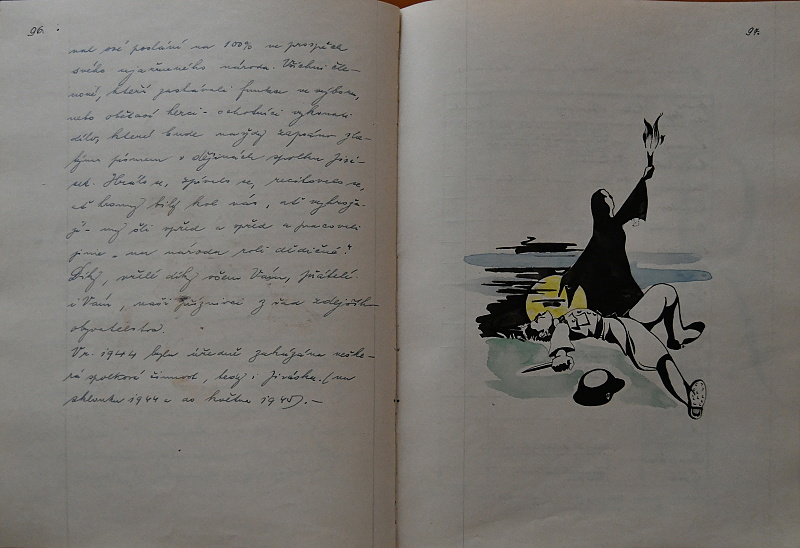 96.
nal své poslání na 100% ve prospěch
svého ujařmeného národa. Všichni čle-
nové, kteří zastávali funkce ve výboru,
nebo obětaví herci-ochotníci vykonali
dílo, které bude navždy zapsáno zla-
tým písmem v dějinách spolku Jirá-
sek. Hrálo se, zpívalo se, recitovalo se,
ať hromy bily kol nás, ať
my šli vpřed a vpřed a pracovali
jsme „na národa roli dědičné".
Díky, vřelé díky všem Vám, přátelé
i Vám, naši příznivci z řad zdejšího
obyvatelstva.
V r. 1944 byla úředně zakázána veške-
rá spolková činnost, tedy i Jiráska. (na
sklonku 1944 a do května 1945).-
97.